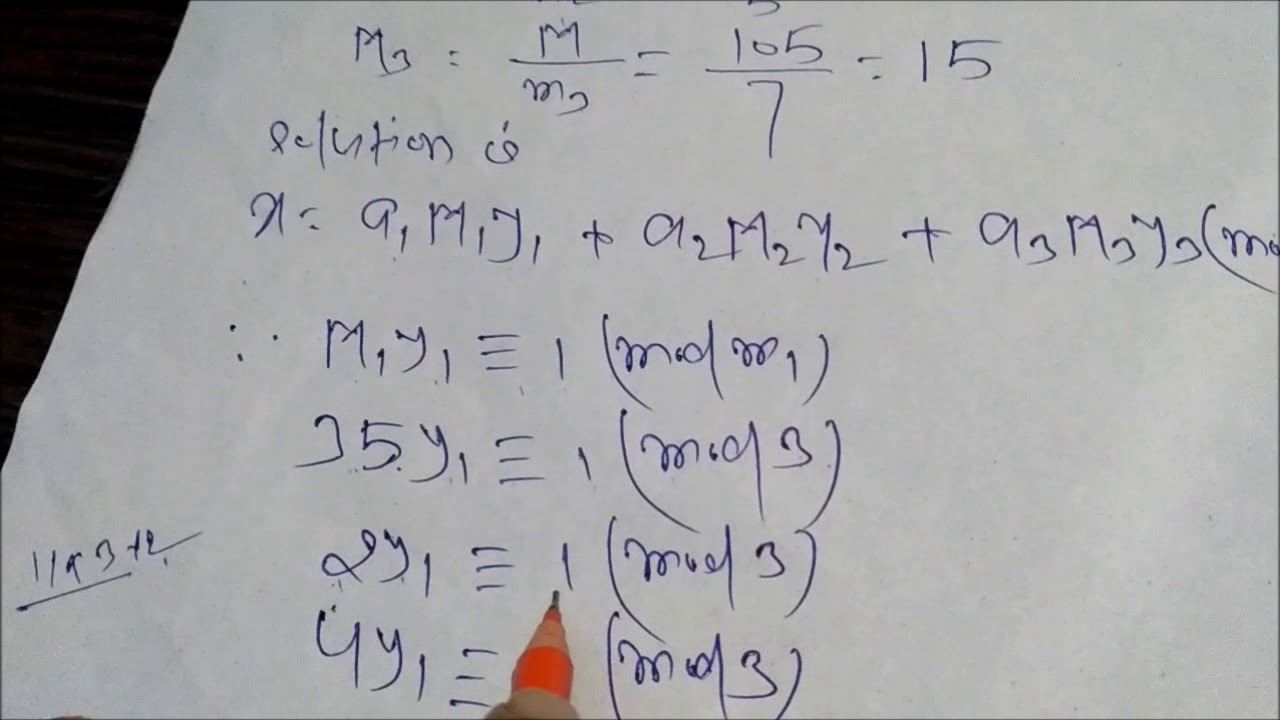 M₃ = M/m₃ = 105/7 = 15
solution is
x = a₁M₁y₁ + a₂M₂y₂ + a₃M₃y₃(mo
∵ M₁y₁ ≡ 1 (mod m₁)
35y₁ ≡ 1 (mod 3)
11×3+2
2y₁ ≡ 1 (mod 3)
4y₁ ≡ (mod 3)